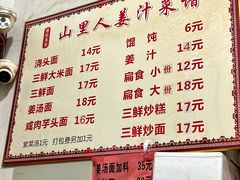 山里人姜汁菜谱
浇头面 14元
三鲜大米面 17元
三鲜面 17元
姜汤面 17元
咸肉芋头面 16元
紫菜汤1元 打包费另加1元
馄饨 6元
姜汁 14元
扁食 小份 12元
扁食 大份 18元
三鲜炒糕 17元
三鲜炒面 17元
姜汤面加料 35元